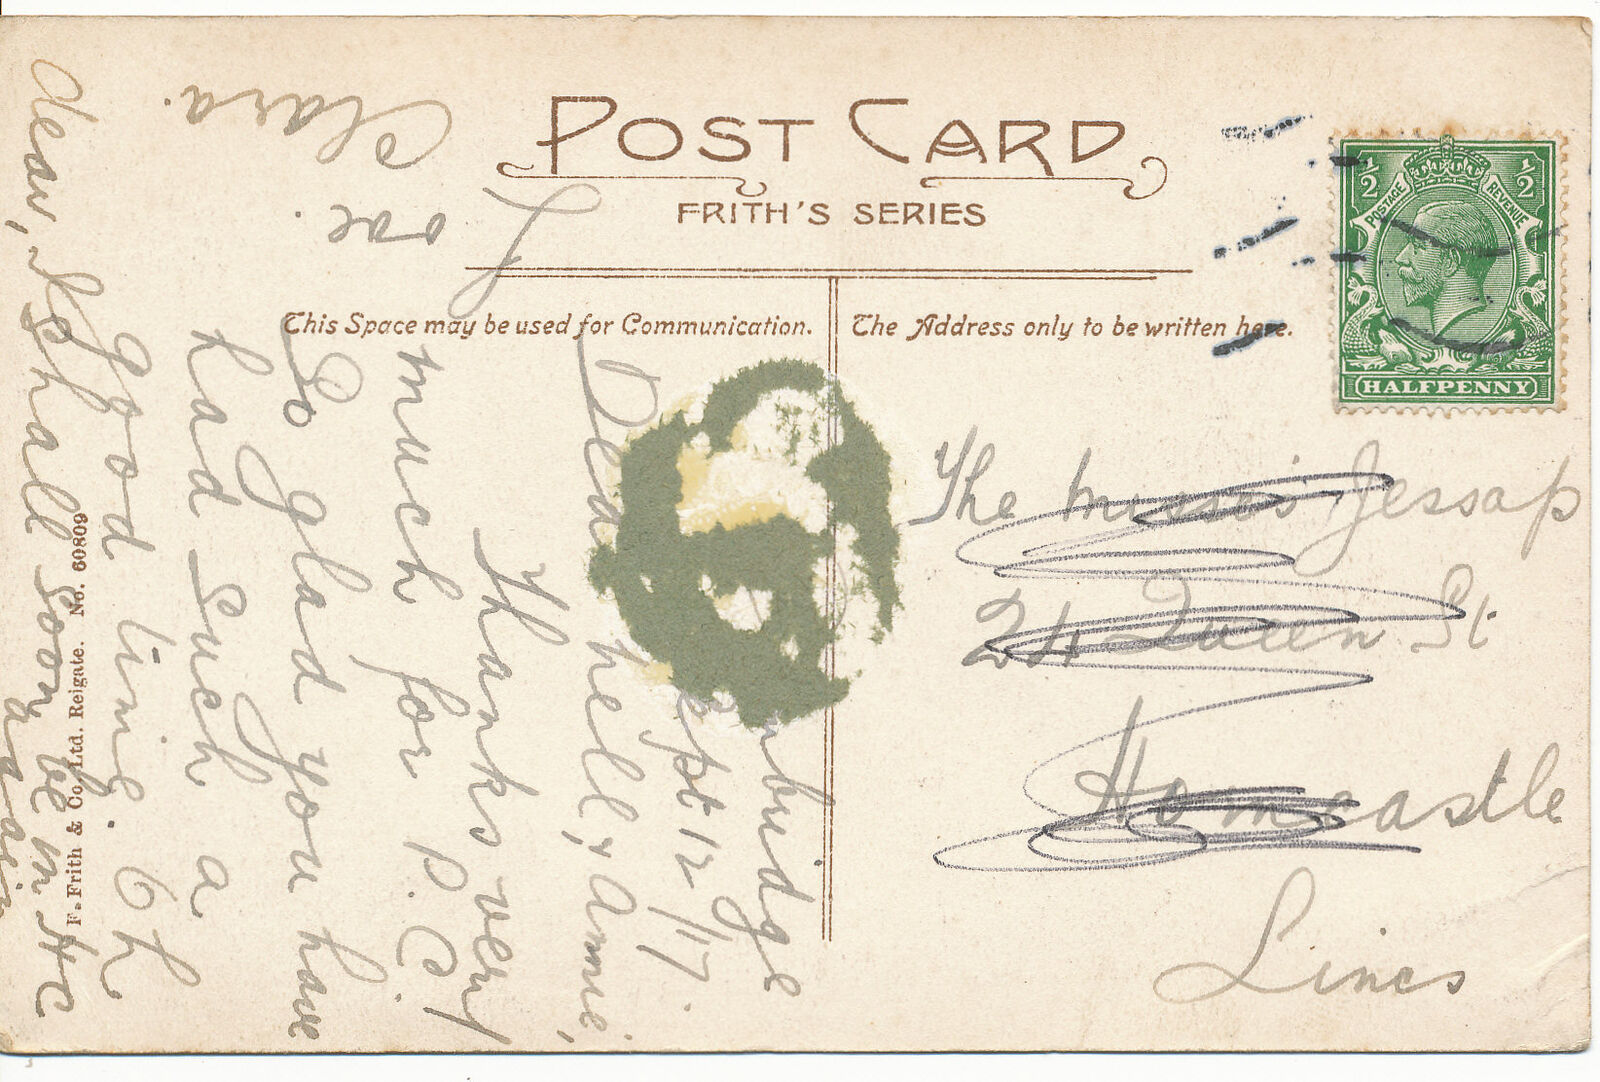 POST CARD
FRITH'S SERIES
This Space may be used for Communication.
The Address only to be written here.
½ ½
POSTAGE REVENUE
HALFPENNY
The Misses Jessop
24 Queen St
Horncastle
Lincs
Sept 12/17.
Dear Nell, & Annie,
Thanks very
much for P.C.
So glad you have
had such a
good time. Oh
dear, I shall soon be in HC
again
Love.
Clara.
F. Frith & Co. Ltd. Reigate. No. 60809